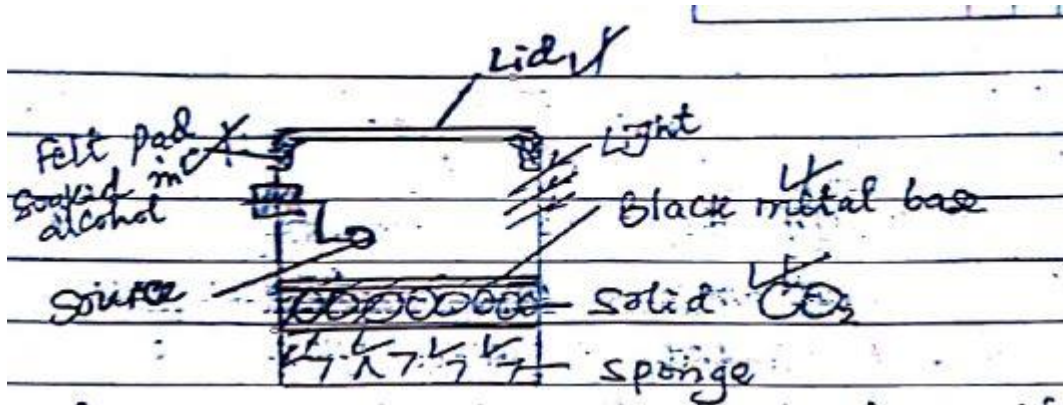 Lid
Felt pad
soakid in
alcohol
Light
Black metal base
source
solid CO₂
sponge